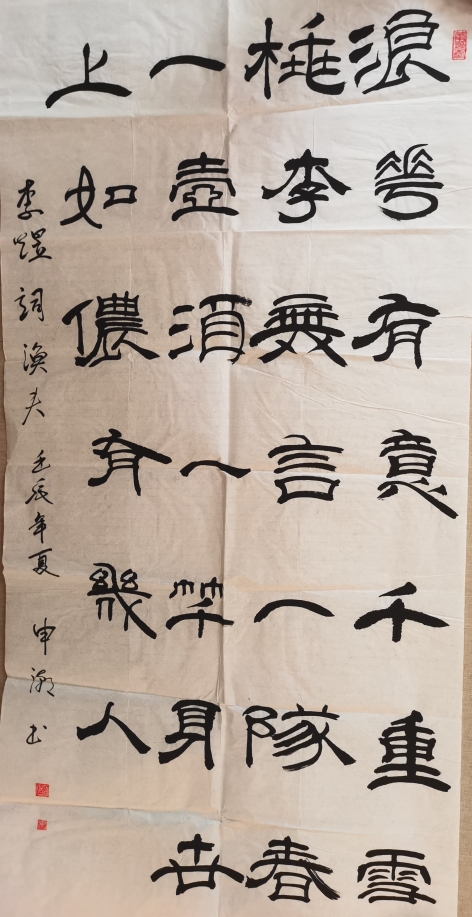 浪花有意千重雪
桃李無言一隊春
一壺湏一竿身世
上如儂有幾人
李煜詞漁夫 壬辰年夏 申书